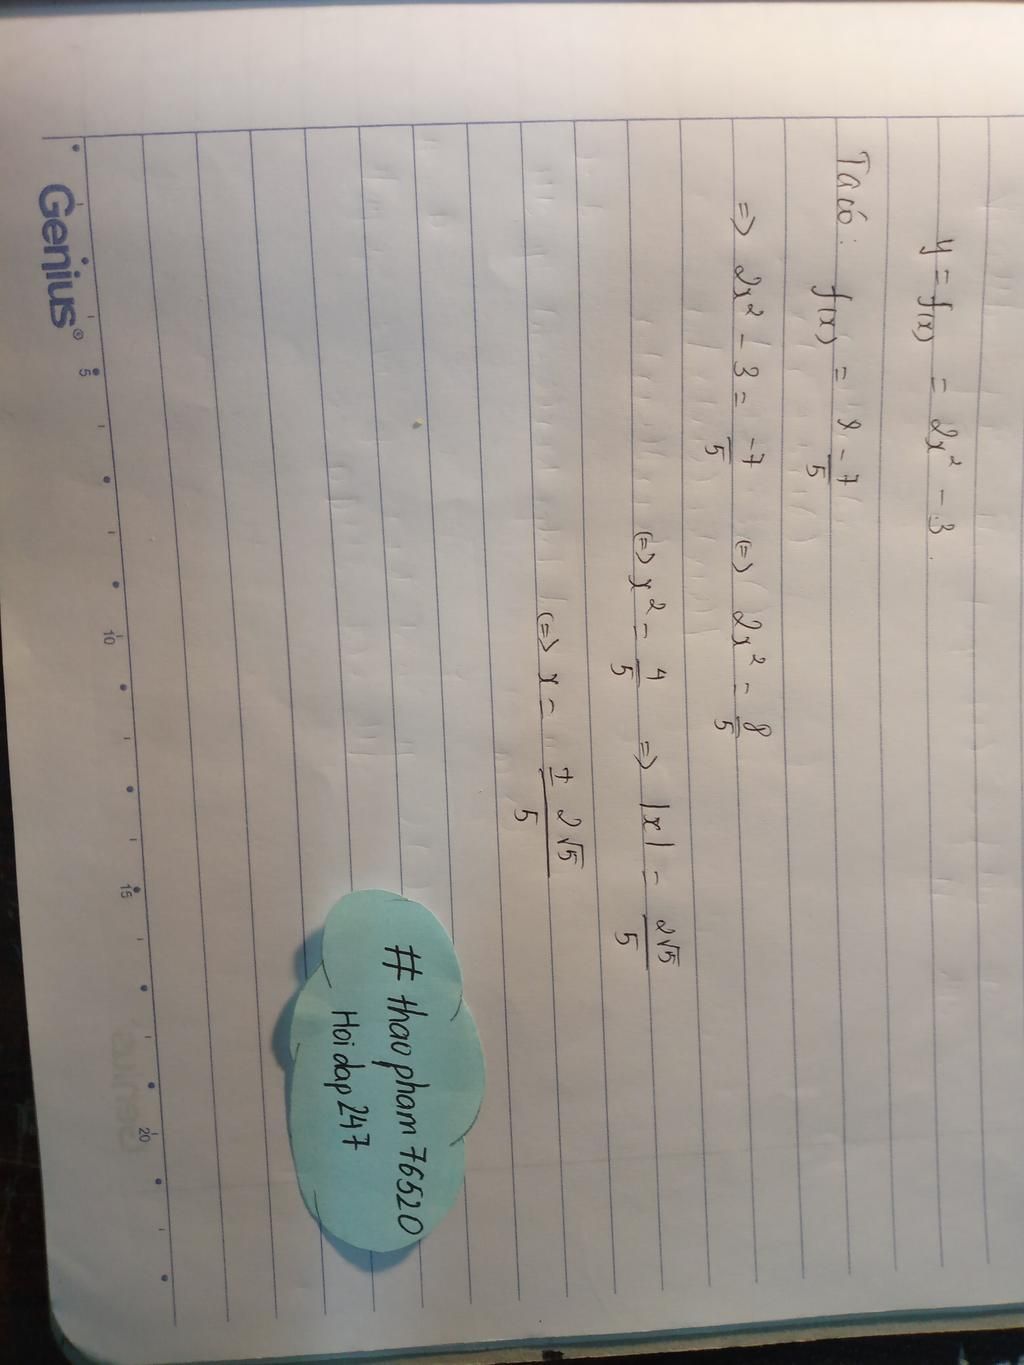 y = f(x) = 2x² - 3.
Ta có: f(x) = -7/5
=> 2x² - 3 = -7/5 (=) 2x² = 8/5
(=) x² = 4/5 => |x| = 2√5/5
(=) x = ± 2√5/5
# thaopham76520
Hoidap247
Genius®
5
10
15
20